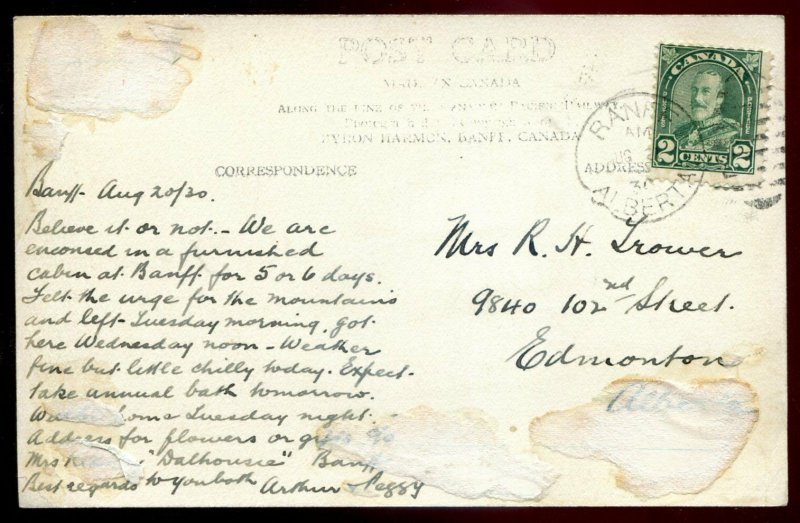 POST CARD
MADE IN CANADA
ALONG THE LINE OF THE CANADIAN PACIFIC RAILWAY
BYRON HARMON, BANFF, CANADA
CORRESPONDENCE
ADDRESS
CANADA
2 CENTS 2
BANFF
AM
30
ALBERTA
Banff Aug 20/30.
Believe it or not - We are
enconsed in a furnished
cabin at Banff for 5 or 6 days.
Felt the urge for the mountains
and left Tuesday morning, got
here Wednesday noon - Weather
fine but little chilly today. Expect
take annual bath tomorrow.
Tuesday night.
Address for flowers or gifts c/o
Mrs "Dalhousie" Banff
Best regards to you both Arthur & Peggy
Mrs R. H. Trower
9840 102nd Street.
Edmonton
Alberta